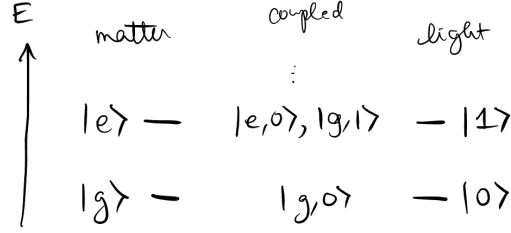 E
matter coupled light
⋮
|e⟩ — |e,0⟩, |g,1⟩ — |1⟩
|g⟩ — |g,0⟩ — |0⟩